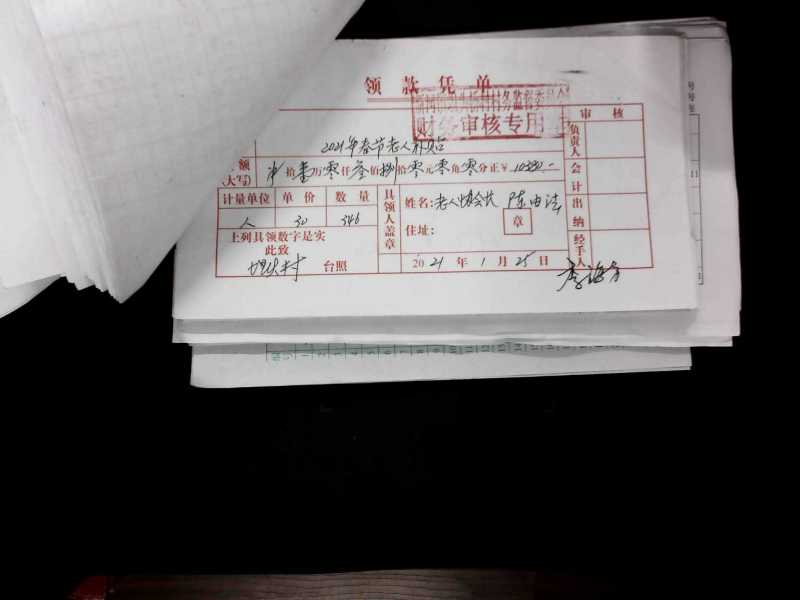 领款凭单
财务审核专用
审核
2021年春节老人补贴
额
(大写) 拾壹万零仟叁佰捌拾零元零角零分正¥ 10380.-
计量单位 单价 数量
人 30 346
上列具领数字是实
此致
村 台照
具领人盖章
姓名:老人协会长 陈
住址:
章
2021年1月25日
负责人
会计
出纳
经手人